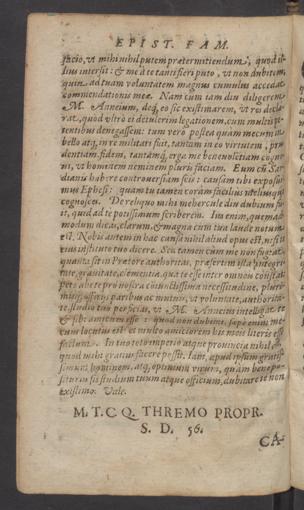 EPIST. FAM.
facio, ut mihi nihil putem prætermittendum, quod il-
lius intersit: & me à te tanti fieri puto, ut non dubitem,
quin ad tuam voluntatem magnus cumulus accedat
commendationis meæ. Nam cum tam diu diligerem
M. Anneium, deq́, eo sic existimarem, ut res decla-
rat, quòd ultrò ei detulerim legationem, cum multis pe-
tentibus denegassem: tum verò postea quàm mecum in
bello atq, in re militari fuit, tantam in eo virtutem, pru-
dentiam, fidem, tantamq́, erga me benevolentiam cogno-
vi, ut hominem neminem pluris faciam. Eum cū Sar-
dianis habere controversiam scis: causam tibi exposui-
mus Ephesi: quam tu tamen coram facilius meliusque
cognosces. De reliquo mihi mehercule diu dubium fu-
it, quid ad te potissimum scriberem. Ius enim, quemad-
modum dicas, clarum, & magna cum tua laude notum
est. Nobis autem in hac causa nihil aliud opus est, nisi te
ius instituto tuo dicere. Sed tamen cum me non fugiat,
quanta sit in Prætore authoritas, præsertim ista integri-
tate, gravitate, clementia, qua te esse inter omnes constat:
peto abs te pro nostra coniunctissima necessitudine, pluri-
misq́, officiis paribus ac mutuis, ut voluntate, authorita-
te, studio tuo perficias, ut M. Anneius intelligat te
& sibi amicum esse: quod non dubitat, sæpe enim me-
cum locutus est: et multo amiciorem his meis literis esse
factum. In tuo toto imperio atque provincia nihil est,
quod mihi gratius facere possis. Iam, apud ipsum gratis-
simum hominem, atq, optimum virum, quàm bene po-
siturus sis studium tuum atque officium, dubitare te non
existimo. Vale.
M. T. C. Q. THREMO PROPR.
S. D. 56.
CA-